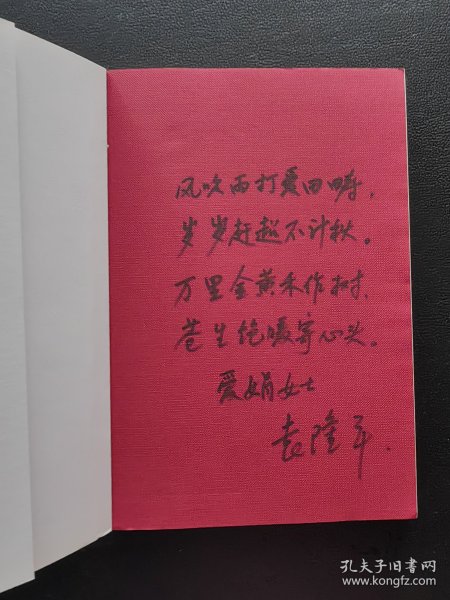 风吹雨打爱田畴，
岁岁赶超不计秋。
万里金黄禾作树，
苍生饱暖寄心头。
爱娟女士
袁隆平
孔夫子旧书网
www.kongfz.com